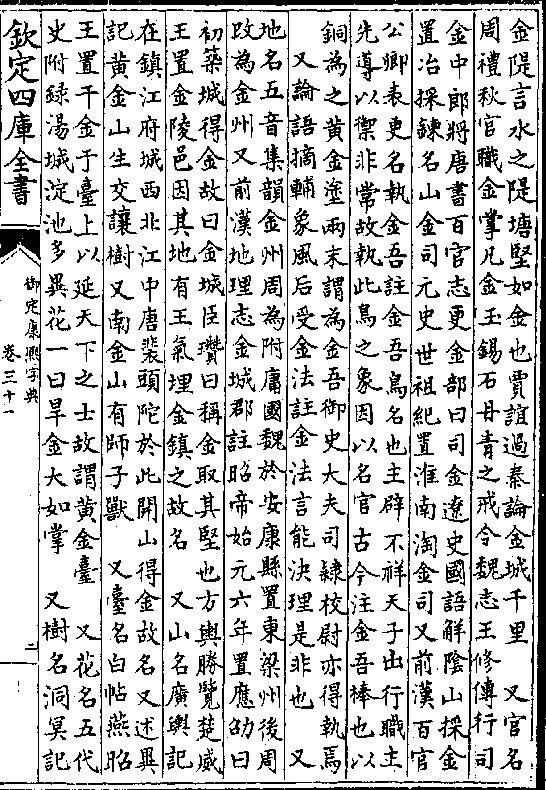 金隄言水之隄塘堅如金也賈誼過秦論金城千里　又官名
周禮秋官職金掌凡金玉錫石丹青之戒令魏志王修傳行司
金中郎將唐書百官志更金部曰司金遼史國語解陰山採金
置冶採鍊名山金司元史世祖紀置淮南淘金司又前漢百官
公卿表更名執金吾註金吾鳥名也主辟不祥天子出行職主
先導以禦非常故執此鳥之象因以名官古今注金吾棒也以
銅為之黃金塗兩末謂為金吾御史大夫司隸校尉亦得執焉
又論語摘輔象風后受金法註金法言能決理是非也　又
地名五音集韻金州周為附庸國魏於安康縣置東梁州後周
改為金州又前漢地理志金城郡註昭帝始元六年置應劭曰
初築城得金故曰金城臣瓚曰稱金取其堅也方輿勝覽楚威
王置金陵邑因其地有王氣埋金鎮之故名　又山名廣輿記
在鎮江府城西北江中唐裴頭陀於此開山得金故名又述異
記黃金山生交讓樹又南金山有師子獸　又臺名白帖燕昭
王置千金于臺上以延天下之士故謂黃金臺　又花名五代
史附錄湯城淀池多異花一曰旱金大如掌　又樹名洞冥記
欽定四庫全書
御定康熙字典
卷三十一
二